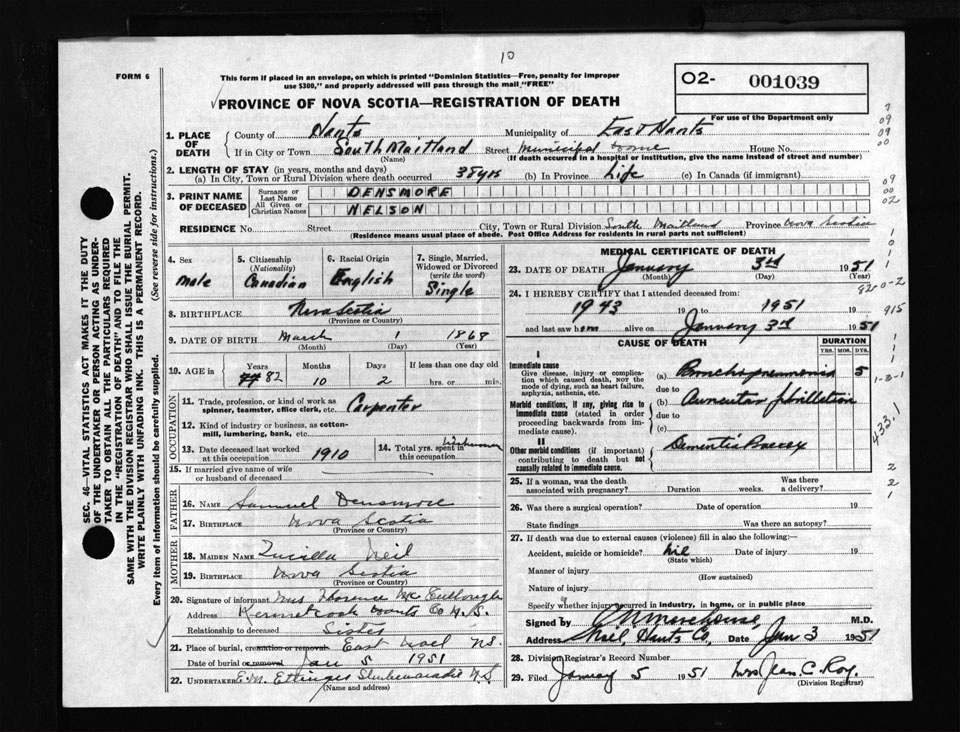 10
FORM 6
This form if placed in an envelope, on which is printed "Dominion Statistics—Free, penalty for improper
use $300," and properly addressed will pass through the mail "FREE"
O2- 001039
For use of the Department only
PROVINCE OF NOVA SCOTIA—REGISTRATION OF DEATH
SEC. 46—VITAL STATISTICS ACT MAKES IT THE DUTY
OF THE UNDERTAKER OR PERSON ACTING AS UNDER-
TAKER TO OBTAIN ALL THE PARTICULARS REQUIRED
IN THE "REGISTRATION OF DEATH" AND TO FILE THE
SAME WITH THE DIVISION REGISTRAR WHO SHALL ISSUE THE BURIAL PERMIT.
WRITE PLAINLY WITH UNFADING INK. THIS IS A PERMANENT RECORD.
Every item of information should be carefully supplied. (See reverse side for instructions.)
1. PLACE OF DEATH
County of Hants Municipality of East Hants
If in City or Town South Maitland Street Municipal Home House No.
(Name) (If death occurred in a hospital or institution, give the name instead of street and number)
2. LENGTH OF STAY (in years, months and days)
(a) In City, Town or Rural Division where death occurred 38 yrs (b) In Province Life (c) In Canada (if immigrant)
3. PRINT NAME OF DECEASED
Surname or Last Name DENSMORE
All Given or Christian Names NELSON
RESIDENCE No. Street City, Town or Rural Division South Maitland Province Nova Scotia
(Residence means usual place of abode. Post Office Address for residents in rural parts not sufficient)
4. Sex Male
5. Citizenship (Nationality) Canadian
6. Racial Origin English
7. Single, Married, Widowed or Divorced (write the word) Single
8. BIRTHPLACE Nova Scotia
(Province or Country)
9. DATE OF BIRTH March 1868
(Month) (Day) (Year)
10. AGE in Years 82 Months 10 Days 2 If less than one day old
hrs. or min.
OCCUPATION
11. Trade, profession, or kind of work as
spinner, teamster, office clerk, etc. Carpenter
12. Kind of industry or business, as cotton-
mill, lumbering, bank, etc.
13. Date deceased last worked at this occupation 1910
14. Total yrs. spent in this occupation
15. If married give name of wife
or husband of deceased
FATHER
16. NAME Samuel Densmore
17. BIRTHPLACE Nova Scotia
(Province or Country)
MOTHER
18. MAIDEN NAME
19. BIRTHPLACE Nova Scotia
(Province or Country)
20. Signature of informant Mrs Florence Mc Cullough
Address Kennetcook Hants Co N.S.
Relationship to deceased Sister
21. Place of burial, cremation or removal East Noel N.S.
Date of burial or removal Jan 5 1951
22. UNDERTAKER E.M. Ettinger Shubenacadie N.S
(Name and Address)
MEDICAL CERTIFICATE OF DEATH
23. DATE OF DEATH January 3rd 1951
(Month) (Day) (Year)
82-0-2
24. I HEREBY CERTIFY that I attended deceased from:
1943 19 to 1951 19
and last saw him alive on January 3rd 1951
CAUSE OF DEATH DURATION
YRS. MOS. DYS.
I
Immediate cause
Give disease, injury or complica-
tion which caused death, NOT the
mode of dying, such as heart failure,
asphyxia, asthenia, etc.
(a) Bronchopneumonia 5
due to
Morbid conditions, if any, giving rise to
immediate cause (stated in order
proceeding backwards from im-
mediate cause).
(b) Auricular fibrillation
due to
(c)
II
Other morbid conditions (if important)
contributing to death but not
causally related to immediate cause.
Dementia Praecox
25. If a woman, was the death
associated with pregnancy? Duration weeks. Was there
a delivery?
26. Was there a surgical operation? Date of operation 19
State findings Was there an autopsy?
27. If death was due to external causes (violence) fill in also the following:—
Accident, suicide or homicide? Nil Date of injury 19
(State which)
Manner of injury
(How sustained)
Nature of injury
Specify whether injury occurred in industry, in home, or in public place
Signed by M.D.
Address Noel, Hants Co, Date Jan 3 1951
28. Division Registrar's Record Number
29. Filed January 5 1951 Mrs Jean. C. Roy
(Division Registrar)